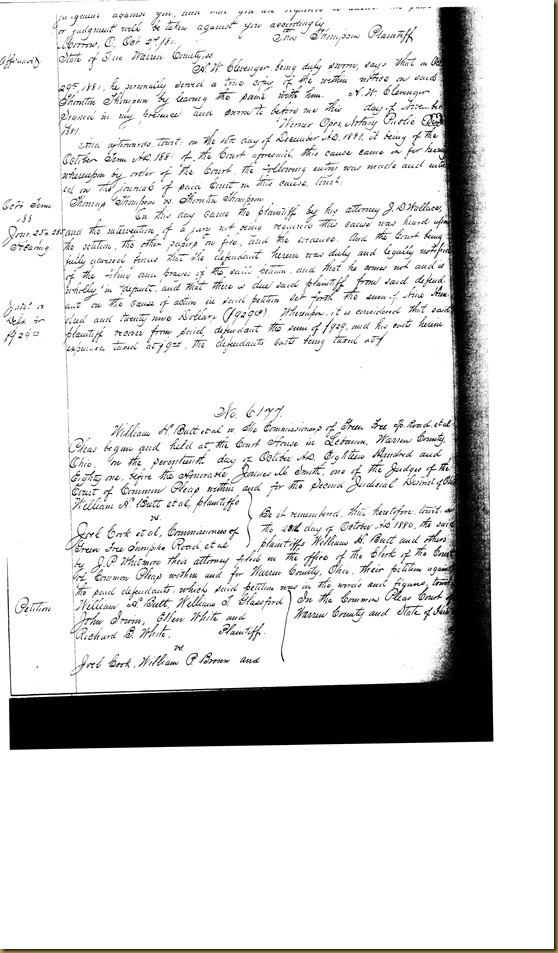 judgment against you, and that you are required to
or judgment will be taken against you accordingly.
Morrow, O. Oct 2d, 1881. Thos Thompson Plaintiff
Affidavit
State of Ohio Warren County, ss
N. W. Clevenger being duly sworn, says that on Oct
29th, 1881, he personally served a true copy of the within notice on said
Thornton Thompson by leaving the same with him. N. W. Clevenger
Signed in my presence and sworn to before me this day of November
1881. Notary Public
And afterwards, towit: on the day of December A.D. 1881, it being of the
October Term A.D. 1881 of the Court aforesaid, this cause came on for hearing
whereupon by order of the Court, the following entry was made and enter
ed in the journal of said Court in this cause, towit:
Thomas Thompson vs Thornton Thompson
Octr Term
188
Jour. 25 p. 285
Hearing
On this day came the plaintiff by his attorney J. D. Wallace,
and the intervention of a jury not being required this cause was heard upon
the petition, the other papers on file, and the evidence. And the Court being
fully advised finds that the defendant herein was duly and legally notified
of the filing and prayer of the said petition, and that he comes not and is
wholly in default, and that there is due said plaintiff from said defend
ant on the cause of action in said petition set forth the sum of Nine Hun
dred and twenty nine Dollars ($929 00). Whereupon, it is considered that said
plaintiff recover from said defendant the sum of $929, and his costs herein
expended taxed at $9 , the defendants costs being taxed at $
Judgt vs
Deft for
$929 00
No. 6177.
William H. Butt et al vs The Commissioners of Green Tree Tp. Road, et al
Pleas began and held at the Court House in Lebanon, Warren County,
Ohio, on the seventeenth day of October A.D. Eighteen Hundred and
Eighty one, before the Honorable James M. Smith, one of the Judges of the
Court of Common Pleas within and for the Second Judicial District of Ohio
William H. Butt et al, plaintiffs
vs
Joel Cook et al, Commissioners of
Green Tree Turnpike Road, et al
Be it remembered, that heretofore, towit: on
the 28th day of October A.D. 1880, the said
plaintiffs William H. Butt and others
by J. P. Whitmore their attorney filed in the office of the Clerk of the Court
of Common Pleas within and for Warren County, Ohio, their petition against
the said defendants, which said petition was in the words and figures, towit:
Petition
William H. Butt, William S. Glassford
John Irwin, Ellen White and
Richard B. White. Plaintiff.
vs
Joel Cook, William P. Brown and
In the Common Pleas Court of
Warren County and State of Ohio